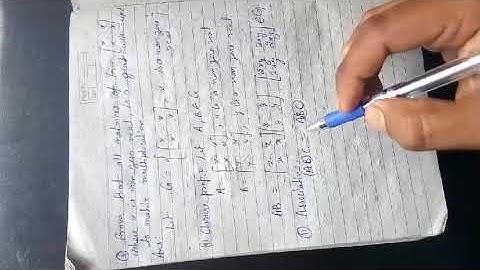 Prove that all matrices of form [x x
x x]
where x is non zero real, is a group with respect
to matrix multiplication
Ans: Let G = { [x x
x x] : x is a non zero
real
(i) Closure prop: Let A, B ∈ G
A = [x x
x x], x is a non zero real
B = [y y
y y], y is a non zero real
AB = [x x
x x] [y y
y y] = [2xy 2xy
2xy 2xy] ∈ G
(ii) Associative
(AB)C = A(BC)